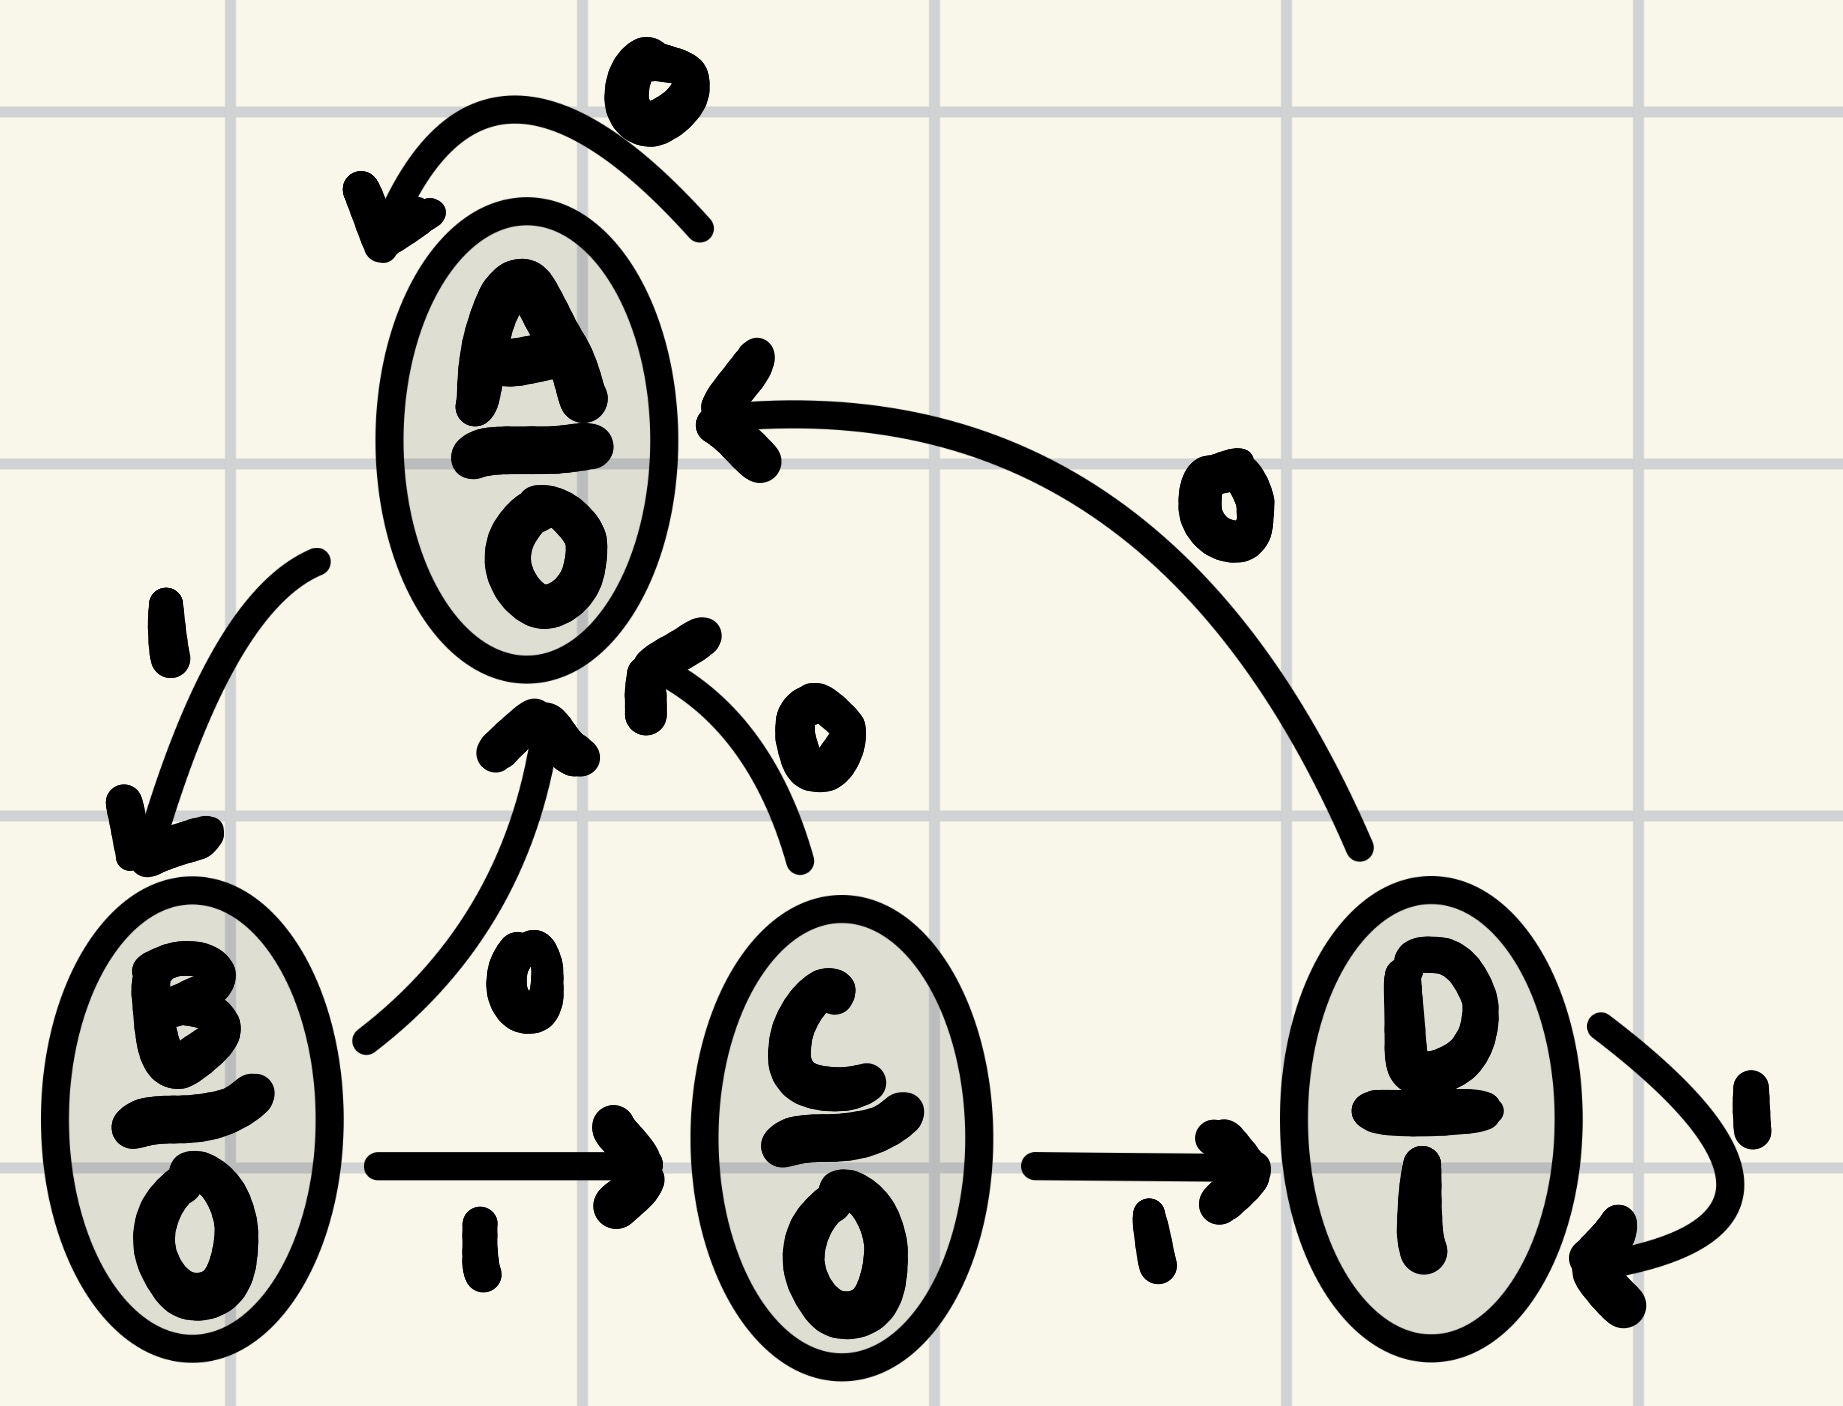 0
A
0
0
1
0
0
B
0
1
C
0
1
D
1
1